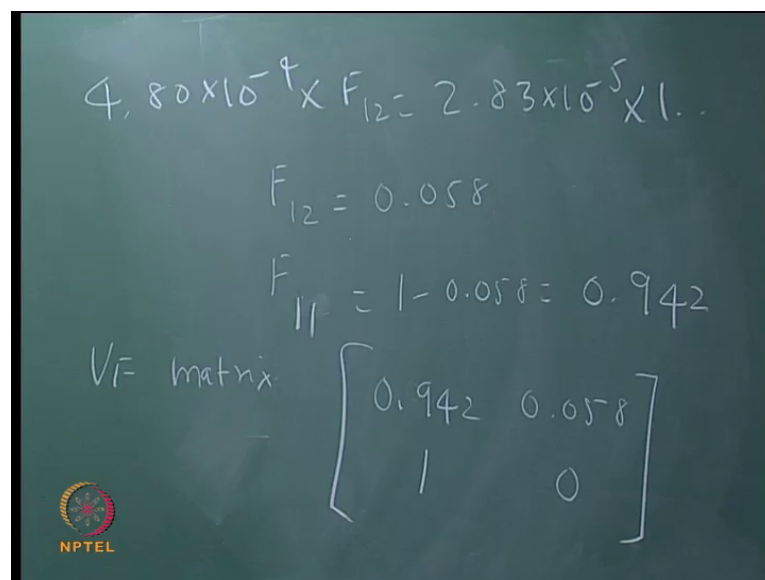 4.80×10⁻⁴ × F₁₂ = 2.83×10⁻⁵ × 1..
F₁₂ = 0.058
F₁₁ = 1 - 0.058 = 0.942
VF matrix [ 0.942 0.058
1 0 ]
NPTEL